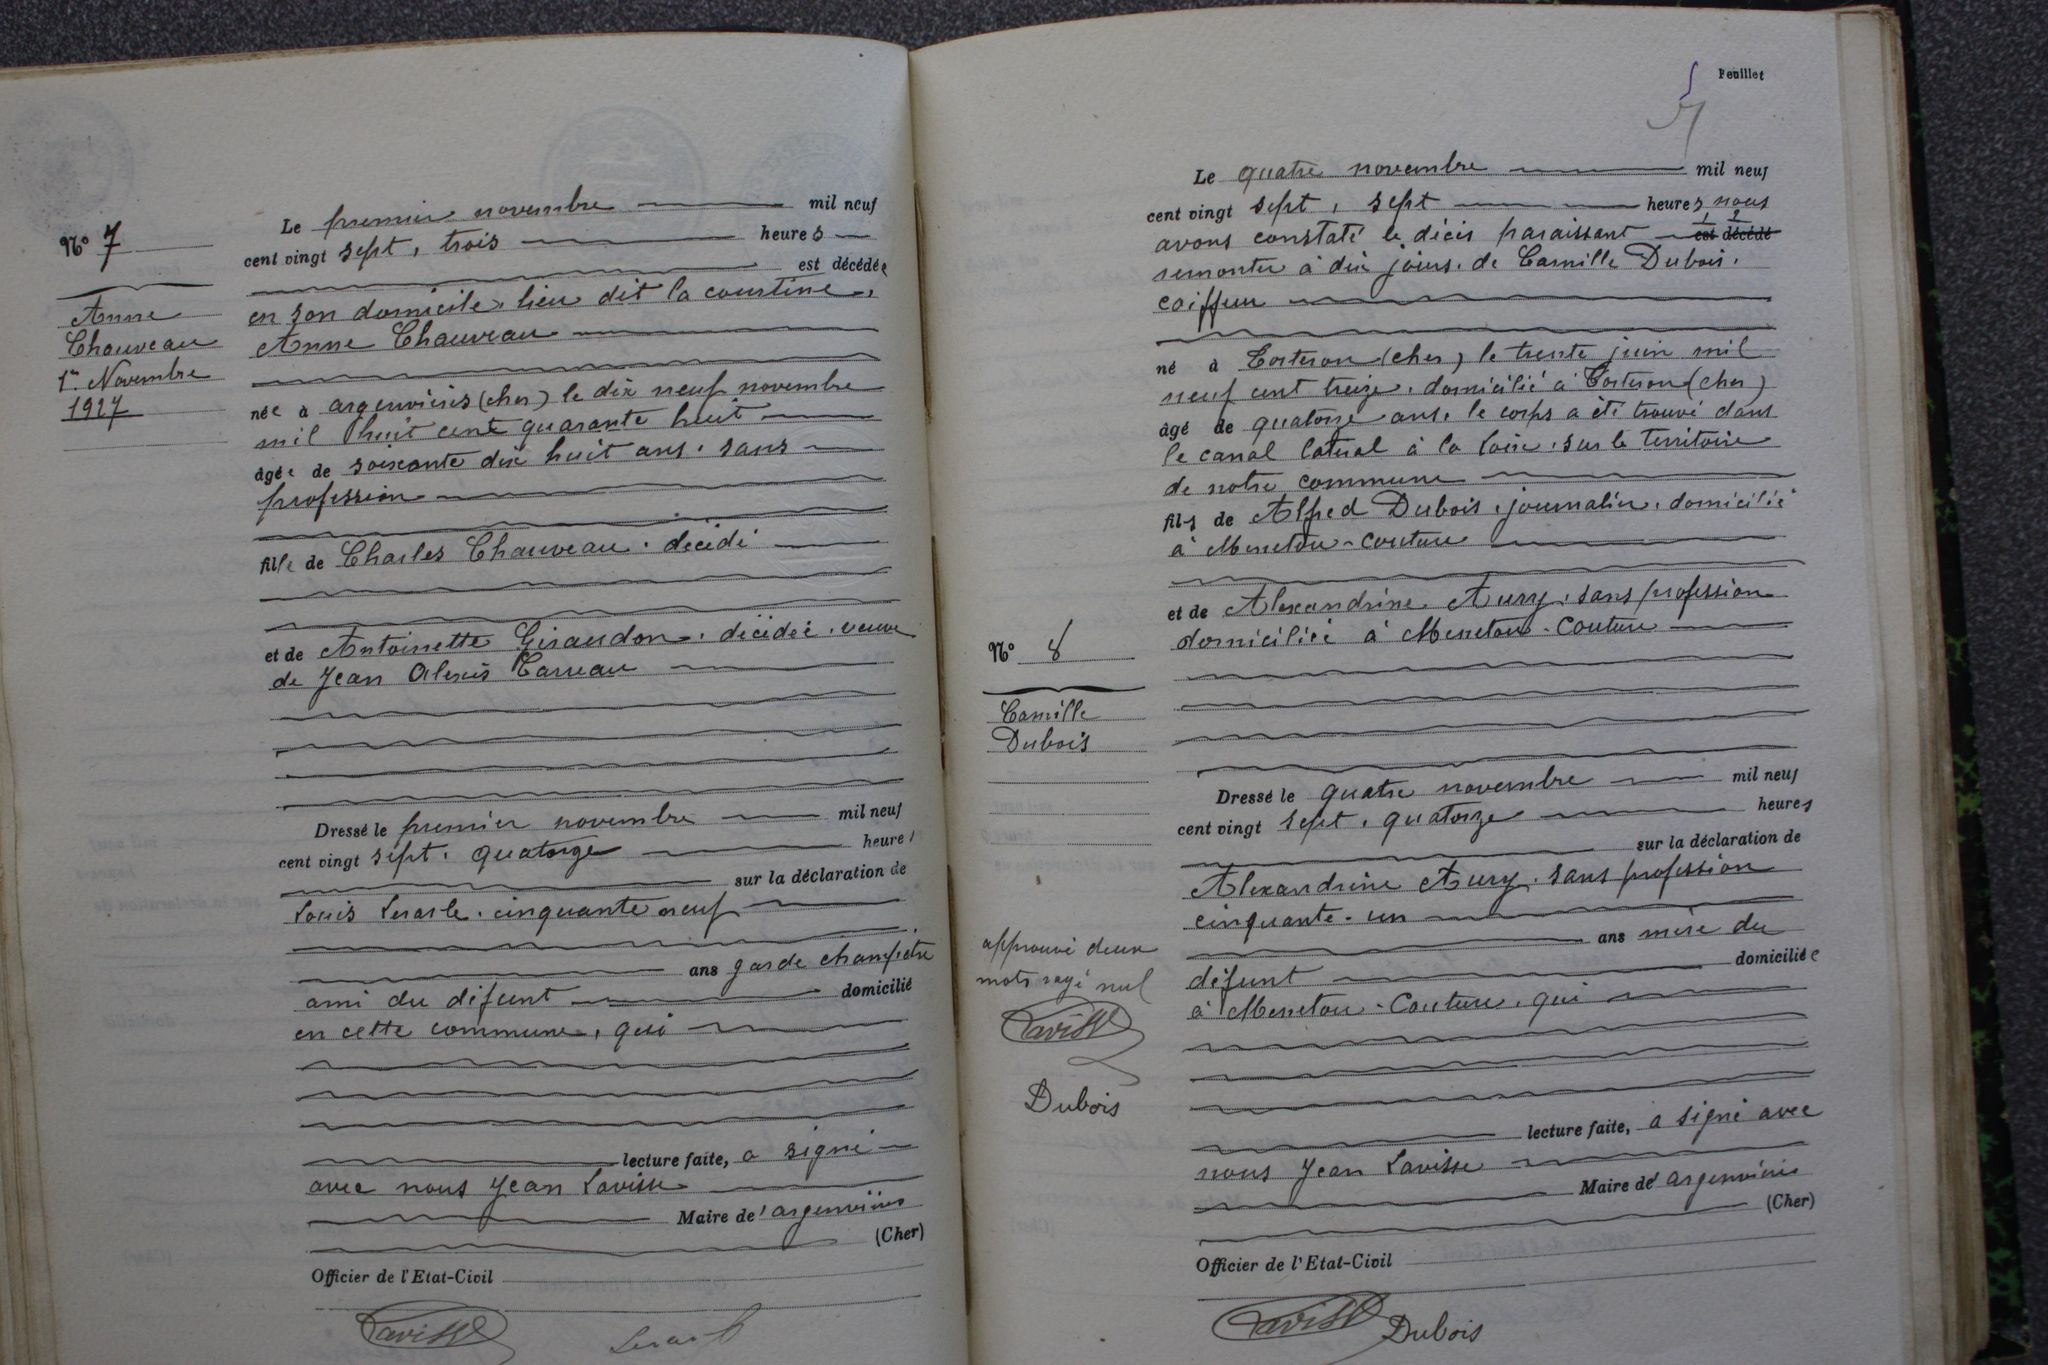 Nº 7
Anne
Chauveau
1er Novembre
1927
Le premier novembre mil neuf
cent vingt sept, trois heures
est décédée
en son domicile, lieu dit la courtine,
Anne Chauveau
née à argenvières (cher) le dix neuf novembre
mil huit cent quarante huit
âgée de soixante dix huit ans, sans
profession
fille de Charles Chauveau, décédé
et de Antoinette Giraudon, décédée, veuve
de Jean Alexis Carreau
Dressé le premier novembre mil neuf
cent vingt sept, quatorze heures
sur la déclaration de
Louis cinquante neuf
ans garde champêtre
ami du défunt domicilié
en cette commune, qui
lecture faite, a signé
avec nous Jean Lavisse
Maire de argenvières
(Cher)
Officier de l'Etat-Civil
Lavisse
5 Feuillet
Le quatre novembre mil neuf
cent vingt sept, sept heures nous
avons constaté le décès paraissant est décédé
1 2
remonter à dix jours, de Camille Dubois,
coiffeur
né à Torteron (cher) le trente juin mil
neuf cent treize, domicilié à Torteron (cher)
âgé de quatorze ans, le corps a été trouvé dans
le canal latéral à la Loire, sur le territoire
de notre commune
fils de Alfred Dubois, journalier, domicilié
à Menetou-Couture
et de Alexandrine Aury, sans profession
domiciliée à Menetou-Couture
Nº 8
Camille
Dubois
Dressé le quatre novembre mil neuf
cent vingt sept, quatorze heures
sur la déclaration de
Alexandrine Aury, sans profession
cinquante-un
ans mère du
défunt domiciliée
à Menetou-Couture, qui
approuvé deux
mots rayé nul
Lavisse
Dubois
lecture faite, a signé avec
nous Jean Lavisse
Maire de argenvières
(Cher)
Officier de l'Etat-Civil
Lavisse Dubois